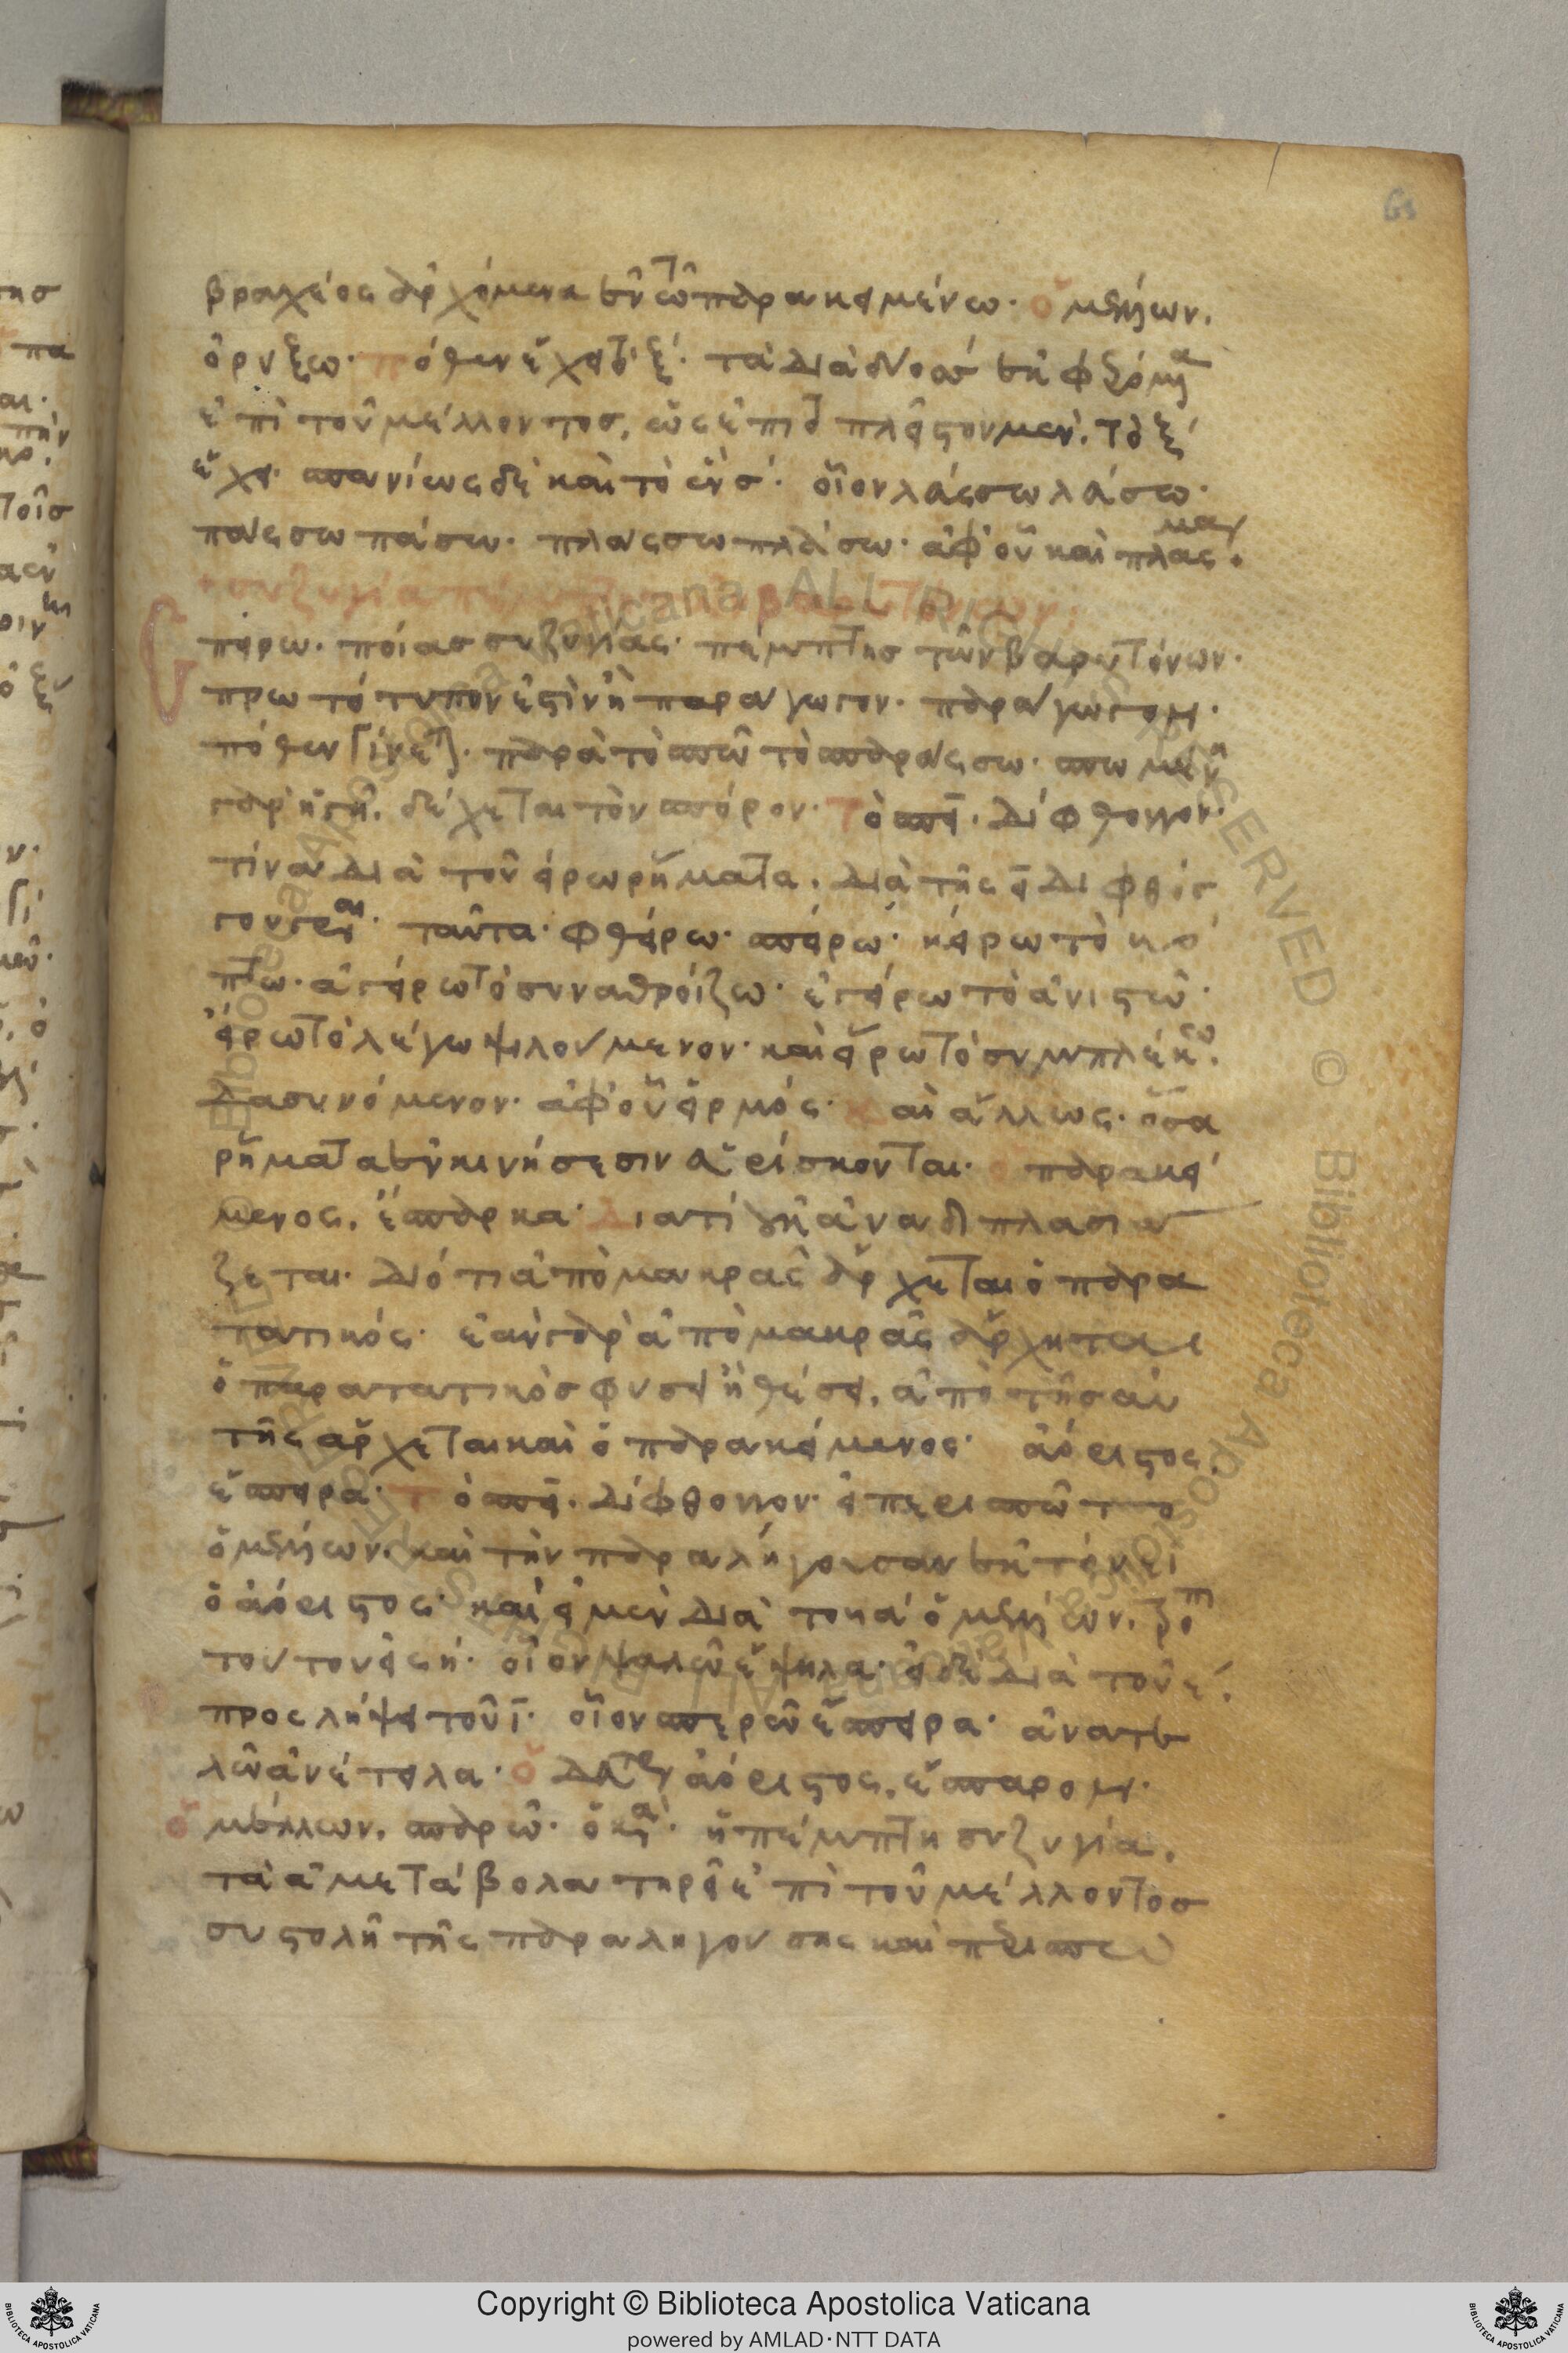 βραχέος ἀρχόμενα ἐν τῶ παρακειμένω. ὁ μέλλων.
ὀρύξω. πόθεν ἔχει τὸ ξ. τὰ διὰ δύο σσ ἐκφερόμενα
ἐπὶ τοῦ μέλλοντος, ὡς ἐπὶ τὸ πλεῖστον μὲν. τὸ ξ
ἔχει. σπανίως δὲ καὶ τὸ ἓν σ. οἷον λάσσω λάσω.
πάσσω πάσω. πλάσσω πλάσω. ἀφ' οὗ καὶ πλάσμα.
+ συζυγία πέμπτη τῶν βαρυτόνων.
Σπείρω. ποίας συζυγίας. πέμπτης τῶν βαρυτόνων.
πρωτότυπον ἐστὶν ἢ παράγωγον. παράγωγον.
πόθεν γίνεται. παρὰ τὸ σπῶ τὸ σπαράσσω. σπωμένη
γὰρ ἡ γῆ. δέχεται τὸν σπόρον. τὸ σπει. δίφθογγον.
τίνα διὰ τοῦ είρω ρήματα. διὰ τῆς ει διφθόγ
γου γράφεται. ταῦτα. φθείρω. σπείρω. κείρω τὸ κό
πτω. ἀγείρω τὸ συναθροίζω. ἐγείρω τὸ ἀνιστῶ.
εἴρω τὸ λέγω ψιλούμενον. καὶ εἵρω τὸ συμπλέκω.
δασυνόμενον. ἀφ' οὗ εἱρμός. καὶ ἄλλως. ὅσα
ρήματα ἐν κινήσεσιν εὑρίσκονται. ὁ παρακεί
μενος. ἔσπαρκα. διατί οὐκ ἀναδιπλασιά
ζεται. διότι ἀπὸ μακρᾶς ἄρχεται ὁ παρα
τατικός. ἐὰν γὰρ ἀπὸ μακρᾶς ἄρχηται
ὁ παρατατικὸς φύσει ἢ θέσει. ἀπὸ τῆς αὐ
τῆς ἄρχεται καὶ ὁ παρακείμενος. ἀόριστος.
ἔσπειρα. τὸ σπει. δίφθογγον. εἰ περισπῶτο
ὁ μέλλων. καὶ τὴν παραλήγουσαν ἐκτείνει
ὁ ἀόριστος. καὶ εἰ μὲν διὰ τοῦ α ὁ μέλλων. τρέπει
τοῦτον εἰς η. οἷον ψαλῶ ἔψηλα. εἰ δὲ διὰ τοῦ ε.
προσλήψει τοῦ ι. οἷον σπερῶ ἔσπειρα. ἀνατε
λῶ ἀνέτειλα. ὁ δεύτερος ἀόριστος. ἔσπαρον.
ὁ μέλλων. σπαρῶ. ὁ κανών. ἡ πέμπτη συζυγία.
τὰ ἀμετάβολα τηρεῖ ἐπὶ τοῦ μέλλοντος
συστολῆ τῆς παραληγούσης καὶ περισπω
Copyright © Biblioteca Apostolica Vaticana
powered by AMLAD·NTT DATA